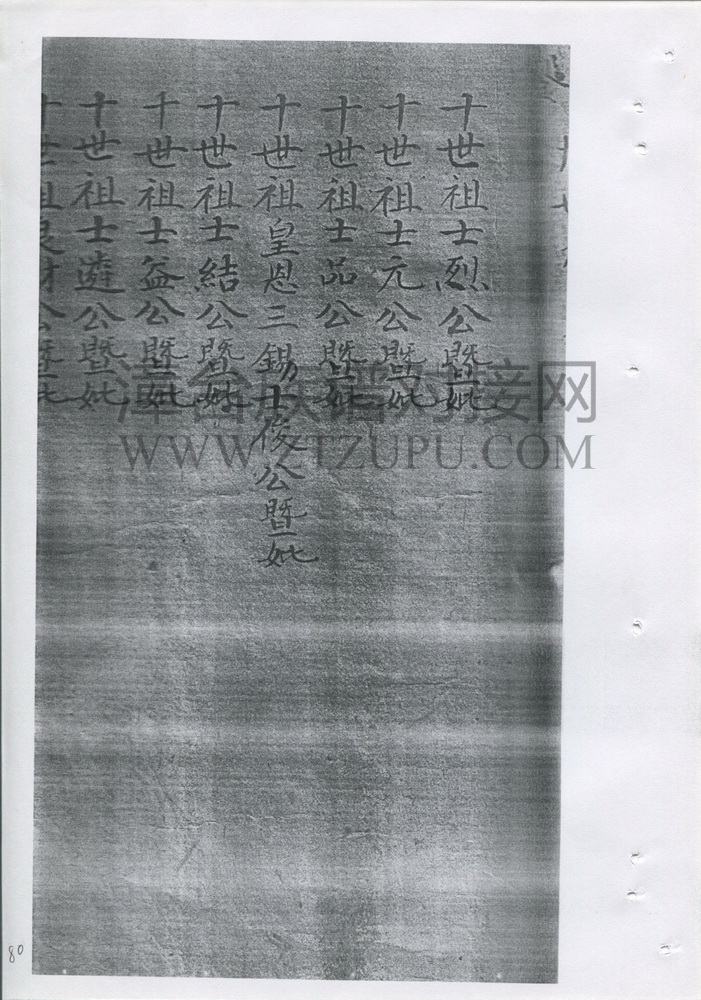 十世祖士烈公暨妣
十世祖士元公暨妣
十世祖士品公暨妣
十世祖皇恩三錫士俊公暨妣
十世祖士結公暨妣
十世祖士益公暨妣
十世祖士公暨妣
十世祖良財公暨妣
族譜對接网
WWW.ZTZUPU.COM
80